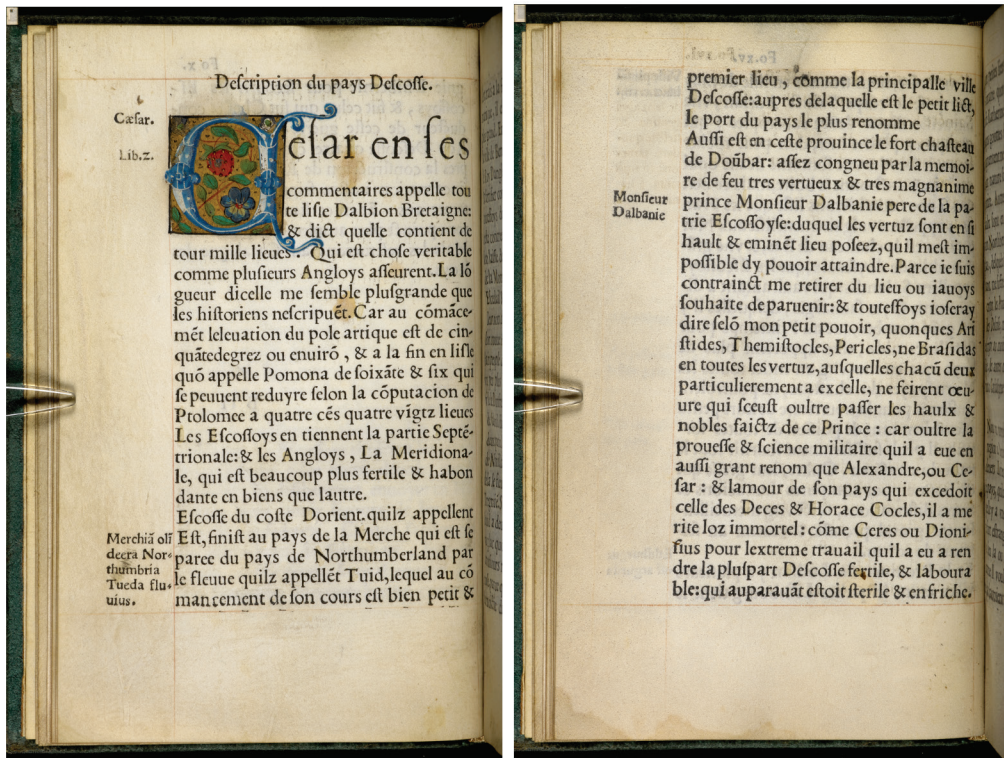 Description du pays Descosse.
Cæsar.
Lib.2.
CEsar en ses
commentaires appelle tou
te lisle Dalbion Bretaigne:
& dict quelle contient de
tour mille lieues. Qui est chose veritable
comme plusieurs Angloys asseurent. La lõ
gueur dicelle me semble plusgrande que
les historiens nescripuẽt. Car au cõmãce-
mẽt leleuation du pole artique est de cin-
quãtedegrez ou enuirõ, & a la fin en lisle
quõ appelle Pomona de soixãte & six qui
se peuuent reduyre selon la cõputacion de
Ptolomee a quatre cẽs quatre vĩgtz lieues
Les Escossoys en tiennent la partie Septẽ-
trionale: & les Angloys, La Meridiona-
le, qui est beaucoup plus fertile & habon
dante en biens que lautre.
Escosse du coste Dorient. quilz appellent
Est, finist au pays de la Merche qui est se
paree du pays de Northumberland par
le fleuue quilz appellẽt Tuid, lequel au cõ
mancement de son cours est bien petit &
Merchiã oli
decra Nor-
thumbria
Tueda flu-
uius.
premier lieu, comme la principalle ville
Descosse: aupres delaquelle est le petit lict,
le port du pays le plus renomme
Aussi est en ceste prouince le fort chasteau
de Doũbar: assez congneu par la memoi-
re de feu tres vertueux & tres magnanime
prince Monsieur Dalbanie pere de la pa-
trie Escossoyse: duquel les vertuz sont en si
hault & eminẽt lieu poseez, quil mest im-
possible dy pouoir attaindre. Parce ie suis
contrainct me retirer du lieu ou iauoys
souhaite de paruenir: & toutesfoys ioseray
dire selõ mon petit pouoir, quonques Ari
stides, Themistocles, Pericles, ne Brasidas
en toutes les vertuz, ausquelles chacũ deux
particulierement a excelle, ne feirent œu-
ure qui sceust oultre passer les haulx &
nobles faictz de ce Prince: car oultre la
prouesse & science militaire quil a eue en
aussi grant renom que Alexandre, ou Ce-
sar: & lamour de son pays qui excedoit
celle des Deces & Horace Cocles, il a me
rite loz immortel: cõme Ceres ou Dioni-
sius pour lextreme trauail quil a eu a ren
dre la pluspart Descosse fertile, & laboura
ble: qui auparauãt estoit sterile & en friche.
Monsieur
Dalbanie